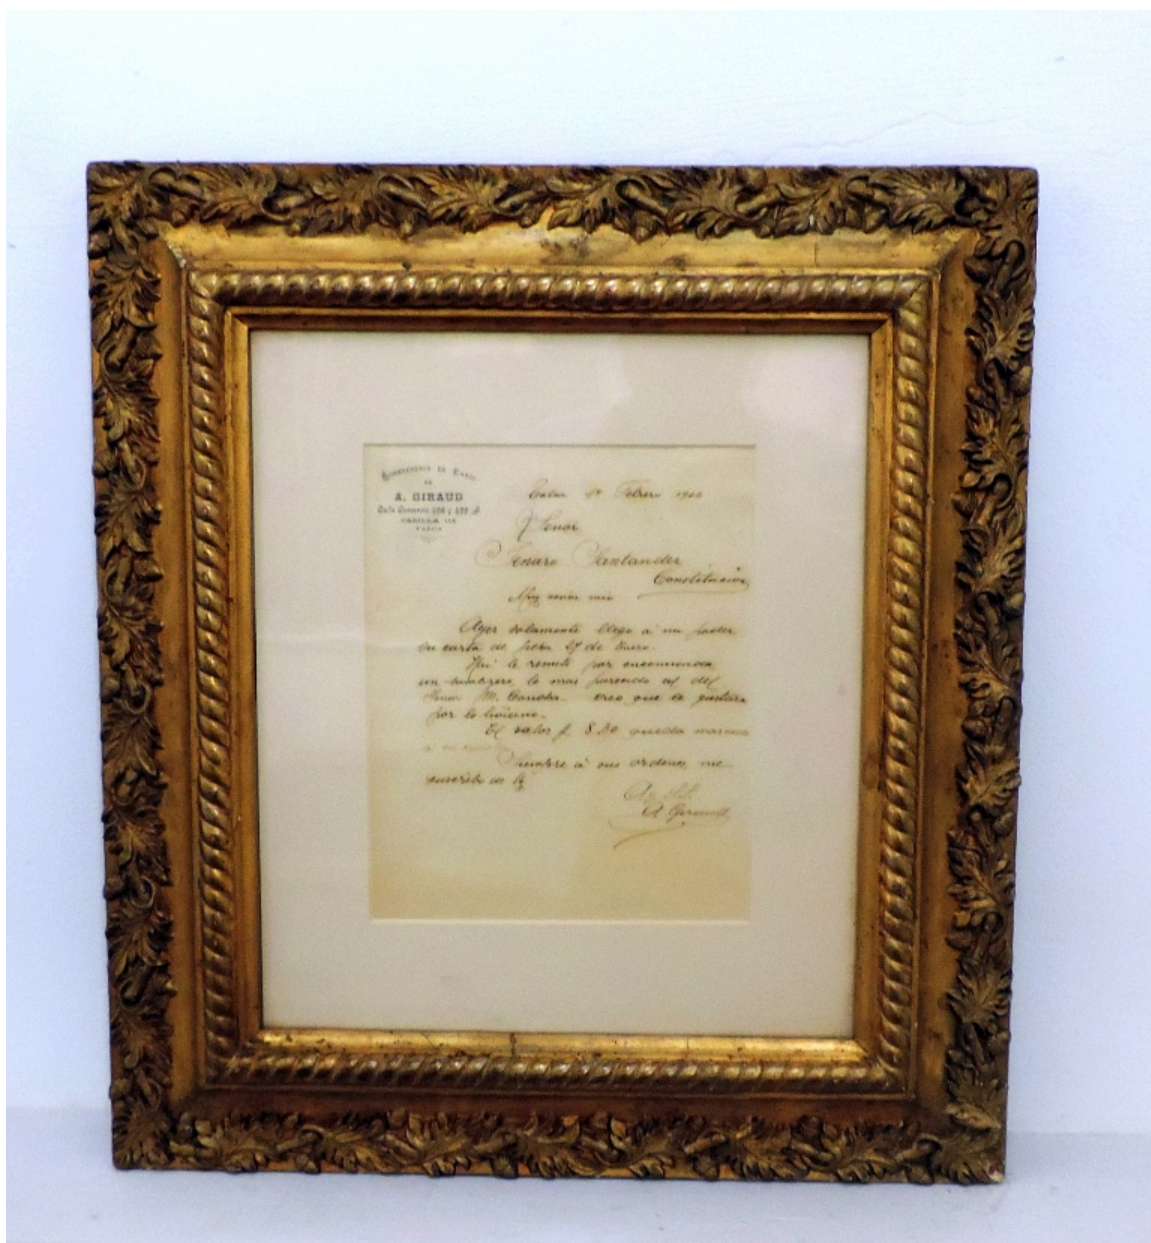 Sombrereria de Paris
DE
A. GIRAUD
Calle Comercio
CASILLA
TALCA
Talca 1º Febrero 190
Señor
Jenaro Santander
Constitucion
Muy señor mio
Ayer solamente llego á mi poder
su carta de fecha 27 de Enero.
Aqui le remito por encomienda
un sombrero lo mas parecido al del
Señor M. Concha. creo que le gustara
por lo
El valor $ 8.50 queda
á su cuenta
Siempre á sus ordenes me
suscribo de
A. Giraud